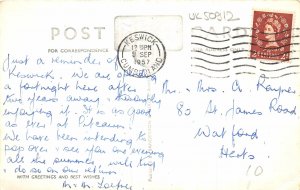 UK50812
POST CARD
FOR CORRESPONDENCE
KESWICK
12 30PM
9 SEP
1957
CUMBERLAND
Just a reminder of
Keswick. We are spending
a fortnight here after
two years away & thoroughly
enjoying it. It is as good
as ever at Pitcairn.
We have been intending to
pop over & see you one evening
all the summer, will try
& do so on our return
WITH GREETINGS AND BEST WISHES
Mr. & Mrs. A. Rayner
82 St. James Road
Watford
Herts
10